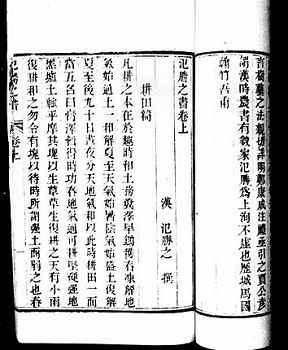 之法親切詳明鄭康成注禮亟引之賈公彥
謂漢時農書有數家氾勝為上洵不虛也歷城馬國
翰竹吾甫
氾勝之書卷上
漢 氾勝之 撰
耕田篇
凡耕之本在於趣時和土務糞澤早鋤穫春凍解地
氣始通土一和解夏至天氣始暑陰氣始盛土復解
夏至後九十日晝夜分天地氣和以此時耕田一而
當五名曰膏澤皆得時功春地氣通可耕堅硬強地
黑壚土輒平摩其塊以生草草生復耕之天有小雨
復耕和之勿令有塊以待時所謂強土而弱之也春
氾勝之書 卷上